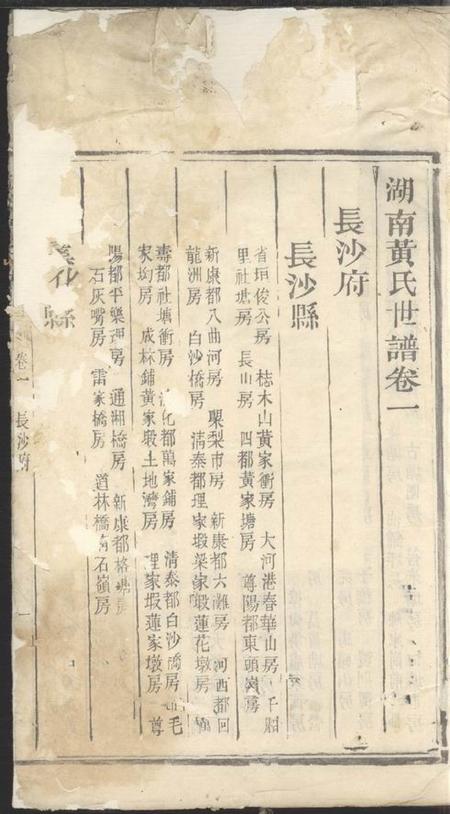 湖南黃氏世譜卷一
長沙府
長沙縣
省垣俊公房 梽木山黃家衝房 大河港春華山房
里社塘房 長山房 四都黃家塘房 尊陽都東頭嶺房
新康都八曲河房 㮚梨市房 新康都六灘房 河西都回
龍洲房 白沙橋房 清泰都理家塅梁家塅蓮花墩房
壽都社塘衝房 化都萬家鋪房 清泰都白沙橋房 毛
家坳房 成林鋪黃家塅土地灣房 理家塅蓮家墩房 尊
陽都平樂沖房 通湖橋房 新康都格塘房
石灰嘴房 雷家橋房 道林橋 石嶺房
縣
卷一 長沙府 一